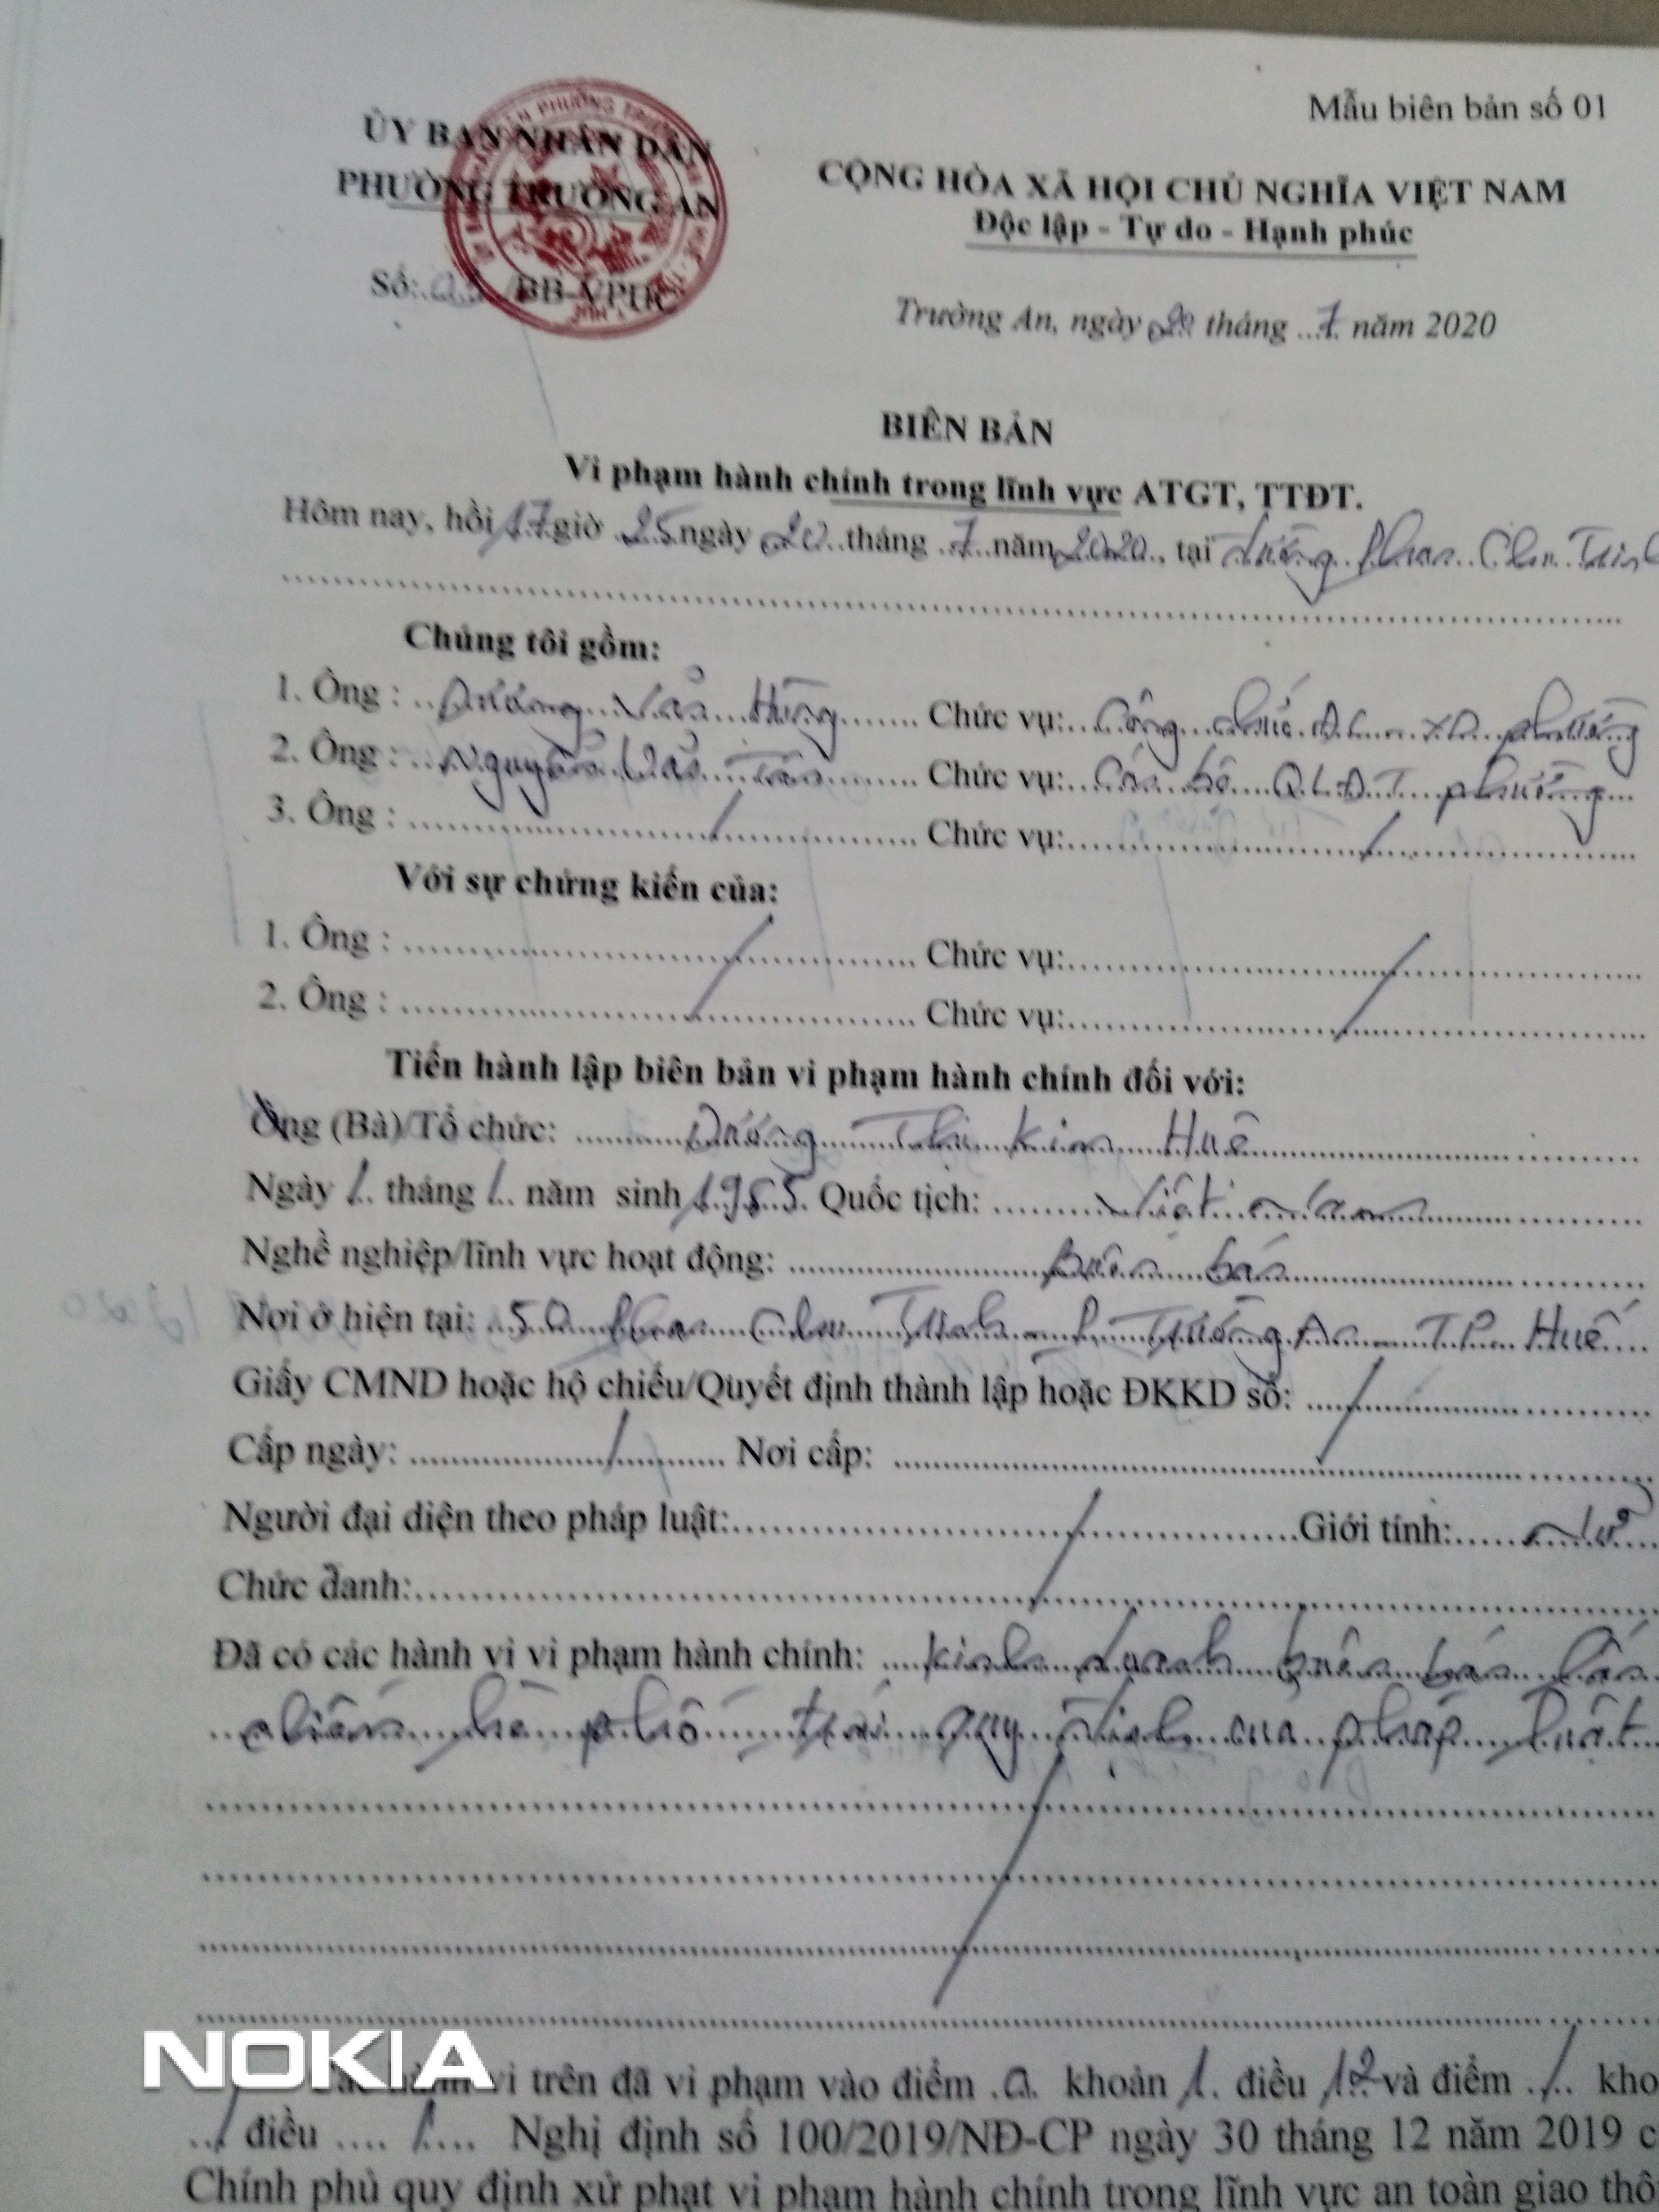 Mẫu biên bản số 01
ỦY BAN NHÂN DÂN
PHƯỜNG TRƯỜNG AN
CỘNG HÒA XÃ HỘI CHỦ NGHĨA VIỆT NAM
Độc lập - Tự do - Hạnh phúc
Số: BB-VPHC
Trường An, ngày 20 tháng 7 năm 2020
BIÊN BẢN
Vi phạm hành chính trong lĩnh vực ATGT, TTĐT.
Hôm nay, hồi 17 giờ 25 ngày 20 tháng 7 năm 2020, tại đường Phan Chu Trinh
Chúng tôi gồm:
1. Ông : Dương Văn Hùng Chức vụ: Công chức ĐC-XD phường
2. Ông : Nguyễn Văn Tân Chức vụ: Cán bộ QLĐT phường
3. Ông : / Chức vụ: /
Với sự chứng kiến của:
1. Ông : / Chức vụ: /
2. Ông : / Chức vụ: /
Tiến hành lập biên bản vi phạm hành chính đối với:
Ông (Bà)/Tổ chức: Dương Thị Kim Huê
Ngày 1 tháng 1 năm sinh Quốc tịch: Việt Nam
Nghề nghiệp/lĩnh vực hoạt động: Buôn bán
Nơi ở hiện tại: 50 Phan Chu Trinh P. Trường An TP. Huế
Giấy CMND hoặc hộ chiếu/Quyết định thành lập hoặc ĐKKD số: /
Cấp ngày: / Nơi cấp:
Người đại diện theo pháp luật: / Giới tính: Nữ
Chức danh:
Đã có các hành vi vi phạm hành chính: kinh doanh buôn bán lấn
chiếm hè phố trái quy định của pháp luật
vi trên đã vi phạm vào điểm a khoản 1 điều 12 và điểm /
/ điều / Nghị định số 100/2019/NĐ-CP ngày 30 tháng 12 năm 2019
Chính phủ quy định xử phạt vi phạm hành chính trong lĩnh vực an toàn giao
NOKIA